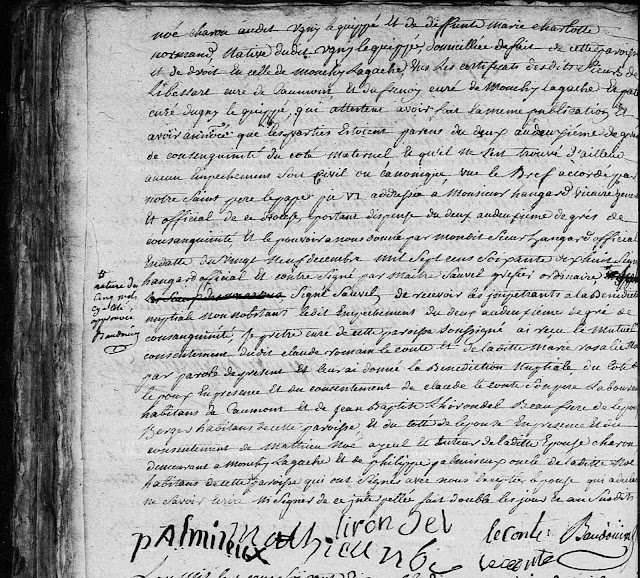 noé charon audit ugny lequippé et de deffunte marie charlotte
normand, native dudit ugny lequippé, domiciliée de fait de cette paroisse
et de droit en celle de mouchy Lagache, vus les certificats desdits Sieurs
Libessart curé de Caumont et dufrenoy curé de Mouchy Lagache et
curé dugny le quippé, qui attestent avoir fait la meme publication et
avoir annoncé que les parties Etoient parens de deux au deuxieme de gré
de consanguinité du coté maternel et qu'il ne s'est trouvé d'ailleur
aucun Empechement soit Civil ou canonique vue le Bref accordé par
notre Saint pere le pape pie VI addressé a Monsieur hangard vicaire general
et official de ce diocese portant dispense du deux au deuxieme degrés de
consanguinité et le pouvoir a nous donné par mondit Sieur hangard official
En datte du vingt Neuf decembre mil Sept cens soixante dix huit Signé
hangard official et contre Signé par maitre Sauvel grefier ordinaire,
Signé Sauvel, de recevoir les impetrants a la Benediction
nuptiale nonobstant ledit Empechement du deux au deuxieme degré de
consanguinité, je pretre curé de cette paroisse Soussigné ai recu le Mutuel
consentement dudit claude romain le conte et de laditte Marie rosalie
par parole de present et leur ai donné la Benediction Nuptiale du coté de
lepoux En presence et du consentement de claude le conte son pere Laboureur
habitans de Caumont et de jean Baptiste Lhirondel Beau frere de lepoux
Berger habitans de cette paroisse et du coté de lepouse En presence et du
consentement de Mathieu Noé ayeul et tuteur de laditte Epouse charon
demeurant a Monchy Lagache et de philippe palmiseux oncle de laditte
habitans de cette paroisse qui ont Signés avec nous Excepter lepouse qui a declaré
ne Savoir écrire Ni Signer de ce interpellée fait double les jours et an Susdits
nature du
cinq mots
approuvée
Baudouin
pAlmireux mathieu noé lirondel leconte Baudouin
leconte